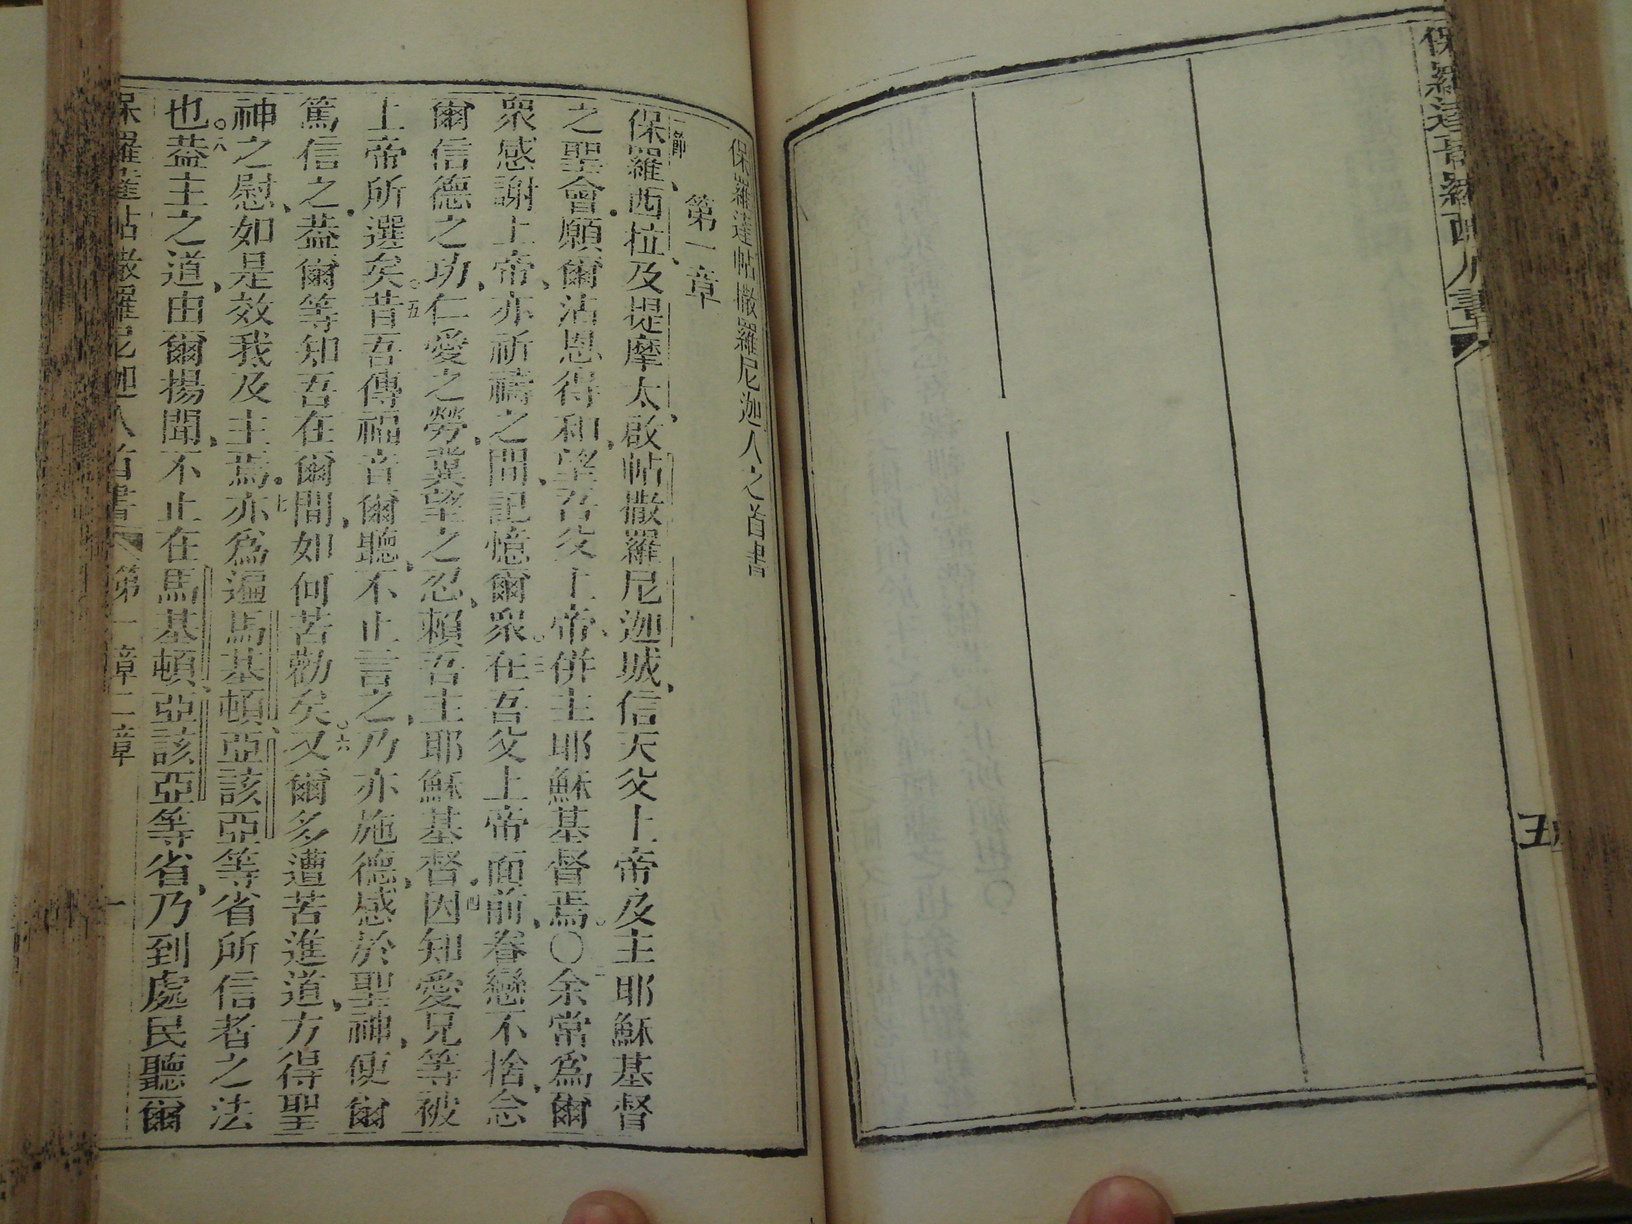 保羅達哥羅西人書
五
保羅達帖撒羅尼迦人之首書
第一章
一節
保羅西拉及提摩太啟帖撒羅尼迦城信天父上帝及主耶穌基督
之聖會願爾沾恩得和望吾父上帝併主耶穌基督焉○余常爲爾
二
衆感謝上帝亦祈禱之間記憶爾衆在吾父上帝面前眷戀不捨念
三
爾信德之功仁愛之勞冀望之忍賴吾主耶穌基督因知愛兄等被
四
上帝所選矣昔吾傳福音爾聽不止言之乃亦施德感於聖神使爾
五
篤信之葢爾等知吾在爾間如何苦勸矣又爾多遭苦進道方得聖
六
神之慰如是效我及主焉亦爲遍馬基頓亞該亞等省所信者之法
七
也葢主之道由爾揚聞不止在馬基頓亞該亞等省乃到處民聽爾
八
保羅達帖撒羅尼迦人首書
第一章二章
一